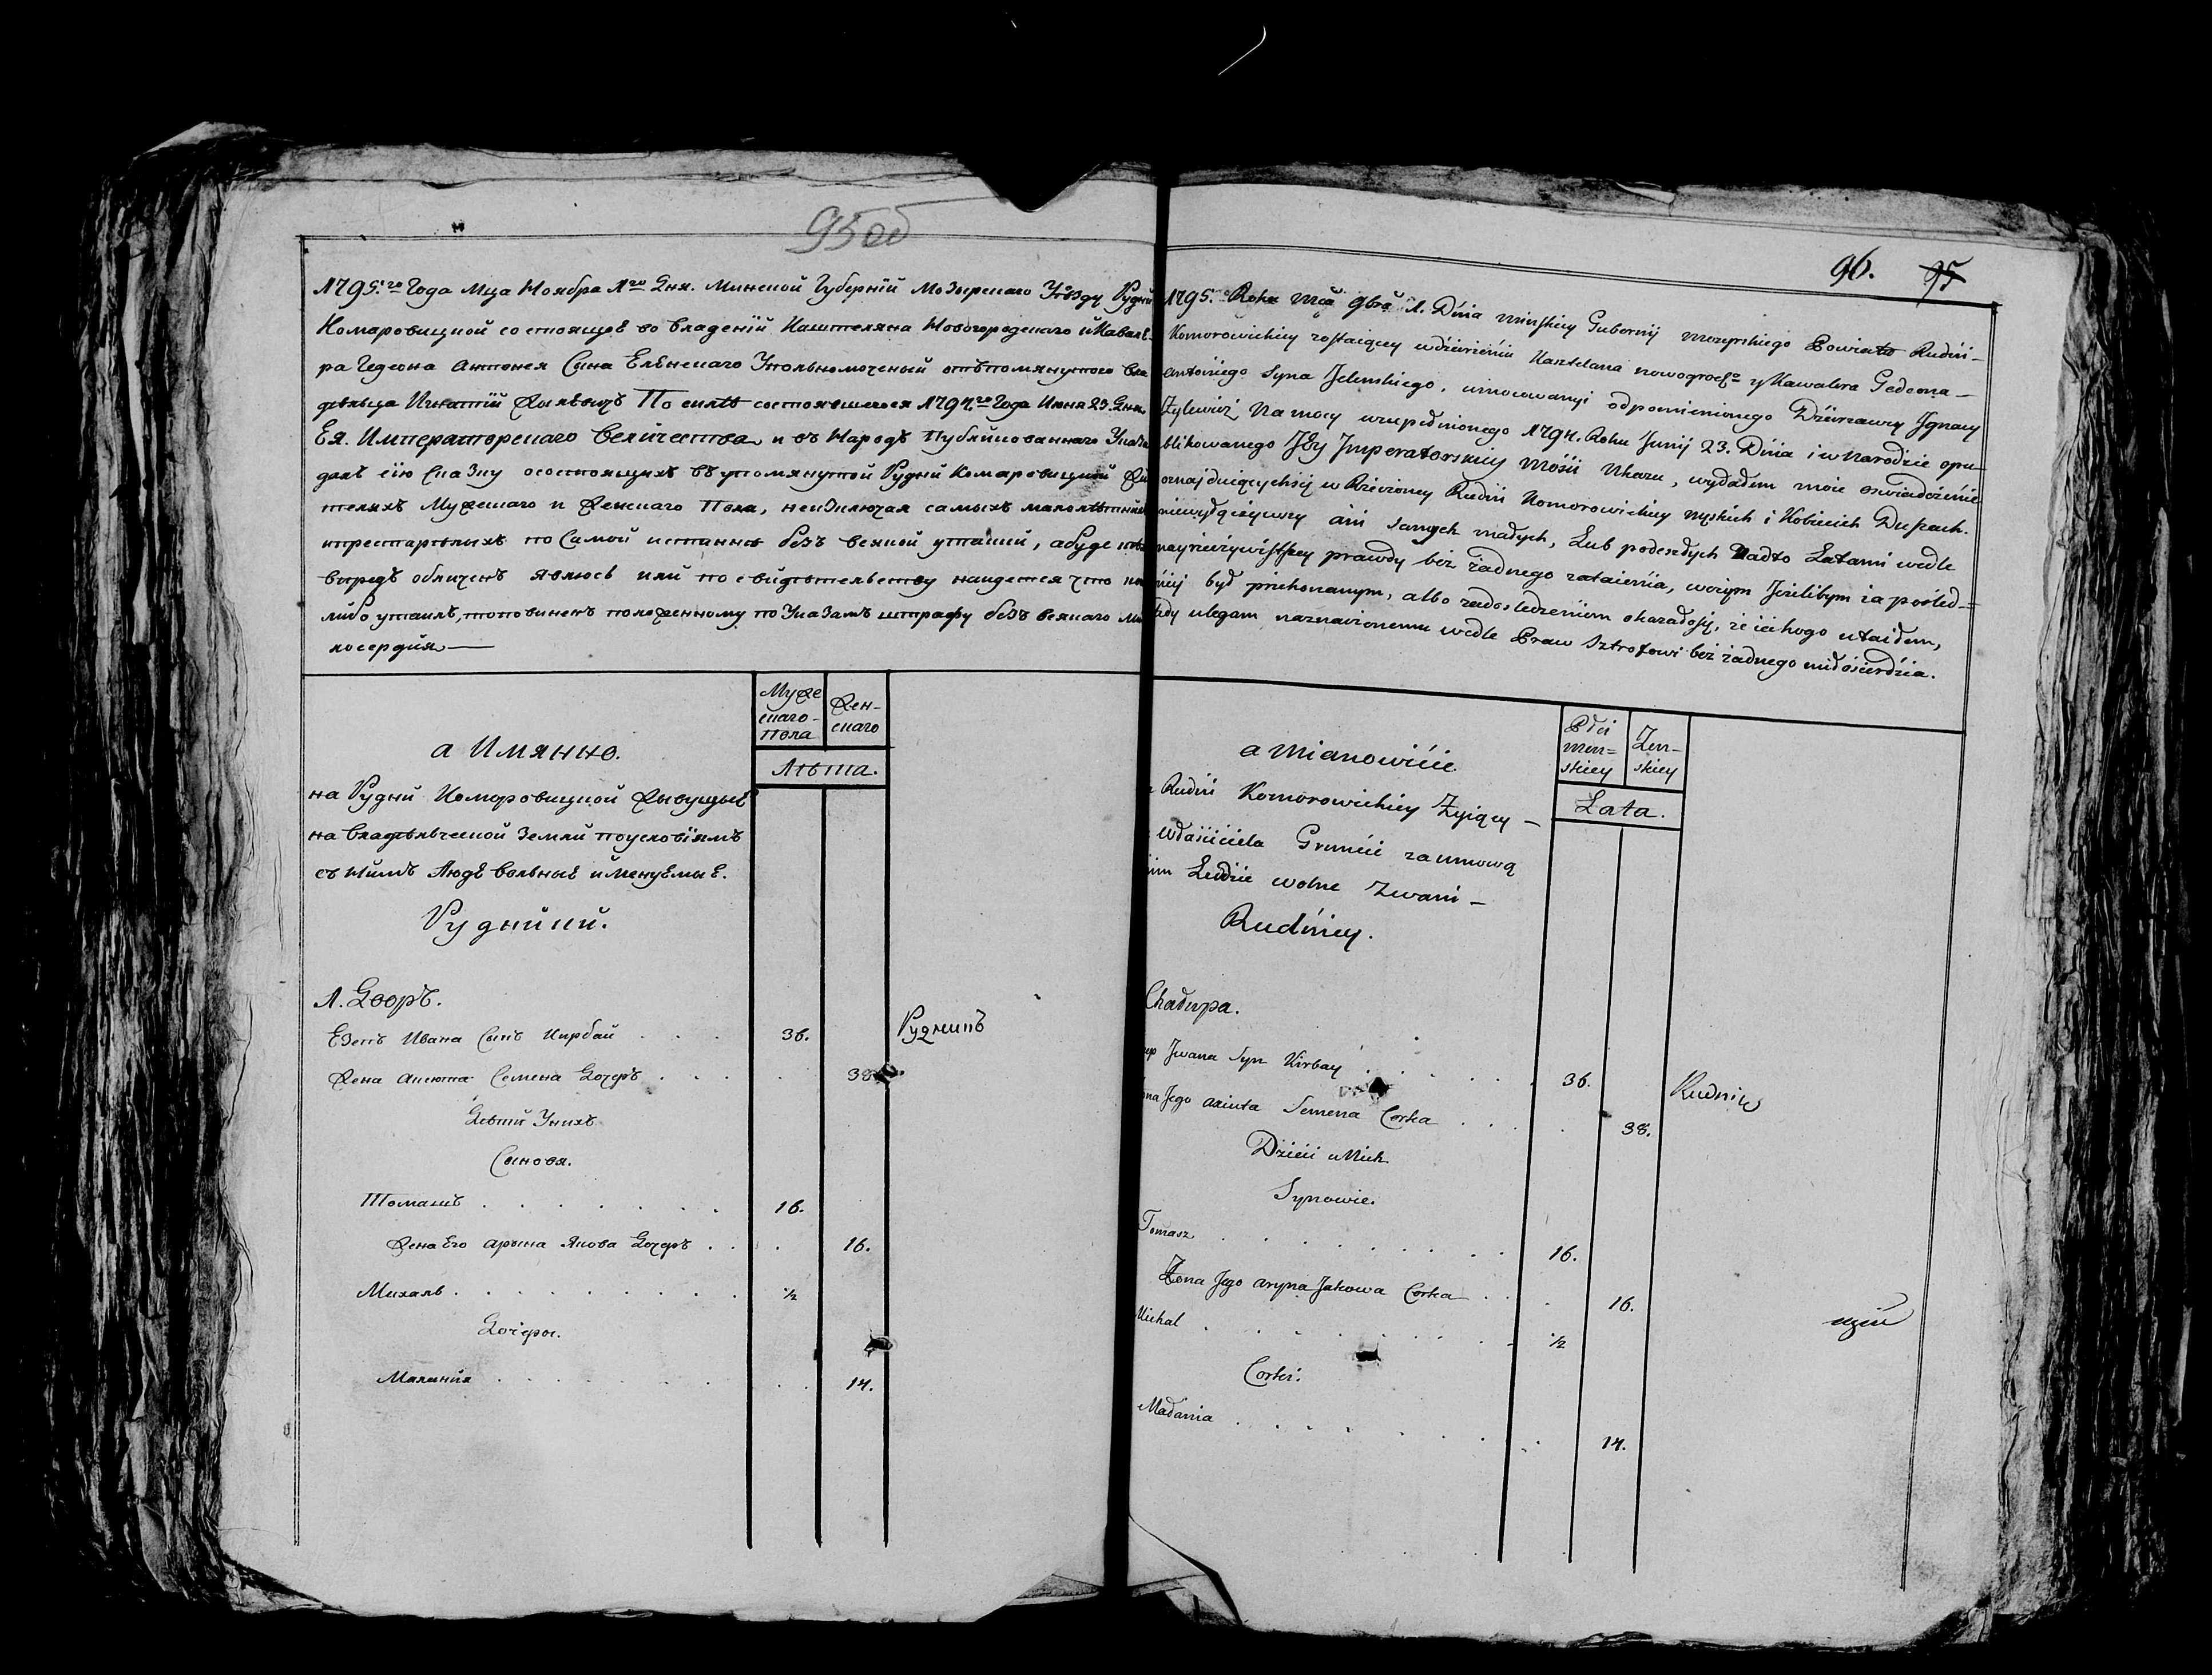 95 об
1795.го Года Мца Ноября 1го Дня. Минской Губернїй Мозырскаго Уѣзду Рудни
Комаровицкой состоящоѣ во Владенїй Каштеляна Новогородскаго и Кавале-
ра Гедеона Антонея Сына Еленскаго Уполъномоченый отъ помянутого Вла
дѣльца Игнатїй Жылевичъ По силѣ состоявшегося 1794.го Года Июня 23. Дня.
Ея. Императорскаго Величества и въ Народъ Публикованнаго Указа
далъ сїю Сказку о состоящихъ въ упомянутой Рудни Комаровицкой Жи
теляхъ Мужескаго и Женскаго Пола, неизключая самыхъ малолѣтних
ипрестарѣлыхъ по Самой истаннѣ безъ всякой утайки, абуде
впредь обличенъ явлюсь или по свидѣтельству найдется что
либо утаилъ, то повиненъ положенному по Указамъ штрафу безъ всякаго ми
лосердия
Муже
скаго
Пола
Жен-
скаго
а Имянно.
Лѣта.
на Рудни Комаровицкой живущые
на владѣльческой Земли по условїямъ
съ Нимъ Люде Вольные именуемые.
Рудники.
1. Дворъ.
Езепъ Ивана Сынъ Кирбай 36. Рудникъ
Жена Аксюта Семена Дочеръ 38.
Дѣти Унихъ
Сыновя.
Томашъ 16.
Жена Его Арына Якова Дочеръ 16.
Михалъ ½
Дочеры.
Малания 14.
96. 95
1795. Roku mca 9bra 1. Dnia minskiey Gubernij mozyrskiego Powiata Rudni-
Komorowickiey zostaiącey w dzierżeniu Kasztelana nowogrodgo y Kawalera Gedeona
Antoniego Syna Jelenskiego. umocowanyi odpomienionego Dzierżawcy Jgnacy
Zylewicz Na mocy wzupełnionego 1794. Roku Junij 23. Dnia i w Narodzie opu-
blikowanego Jey Jmperatorskiey Mości Ukazu, wydałem moie oswiadczenie
oznajduiących się w Rudni Komorowickiey męskich i Kobiecich Duszach.
niewyłączywszy ani samych małych, Lub podeszłych Nadto Latami wedle
nayrzeczywistszey prawdy bez żadnego zataienia, wczym Jezelibym za posled-
niej był przekonanym, albo zadosledzeniem okazałosię, że iekogo utaiłem,
tedy ulegam naznaczonemu wedle Praw Sztrofowi bez żadnego miłosierdzia.
Płci
men=
skiey
Zen-
skiey
a Mianowicie
Lata.
Rudni Komorowickiey Żyiący
własciciela Gruncie za umową
nim Ludzie wolne Zwani
Rudnicy.
Chałupa.
Jwana Syn Kirbay 36. Rudnik
Jego Axiuta Semena Corka 38.
Dzieci u Nich
Synowie.
Tomasz 16.
Żona Jego Aryna Jakowa Corka 16.
Michal ½
Corki.
Małania 14.